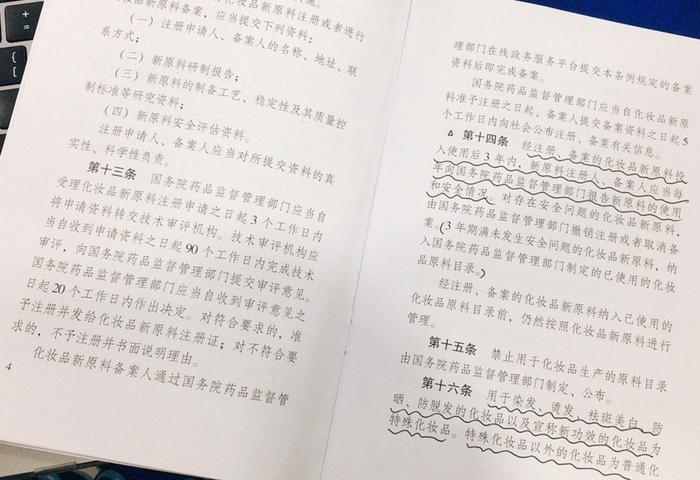 妆品新原料备案，应当提交下列资料：
（一）注册申请人、备案人的名称、地址、联
系方式；
（二）新原料研制报告；
（三）新原料的制备工艺、稳定性及其质量控
制标准等研究资料；
（四）新原料安全评估资料。
注册申请人、备案人应当对所提交资料的真
实性、科学性负责。
第十三条　国务院药品监督管理部门应当自
受理化妆品新原料注册申请之日起3个工作日内
将申请资料转交技术审评机构。技术审评机构应
当自收到申请资料之日起90个工作日内完成技术
审评，向国务院药品监督管理部门提交审评意见。
国务院药品监督管理部门应当自收到审评意见之
日起20个工作日内作出决定。对符合要求的，准
予注册并发给化妆品新原料注册证；对不符合要
求的，不予注册并书面说明理由。
化妆品新原料备案人通过国务院药品监督管
4
理部门在线政务服务平台提交本条例规定的备案
资料后即完成备案。
国务院药品监督管理部门应当自化妆品新原
料准予注册之日起、备案人提交备案资料之日起5
个工作日内向社会公布注册、备案有关信息。
第十四条　经注册、备案的化妆品新原料投
入使用后3年内，新原料注册人、备案人应当每
年向国务院药品监督管理部门报告新原料的使用
和安全情况。对存在安全问题的化妆品新原料，
由国务院药品监督管理部门撤销注册或者取消备
案。（3年期满未发生安全问题的化妆品新原料，纳
入国务院药品监督管理部门制定的已使用的化妆
品原料目录。）
经注册、备案的化妆品新原料纳入已使用的
化妆品原料目录前，仍然按照化妆品新原料进行
管理。
第十五条　禁止用于化妆品生产的原料目录
由国务院药品监督管理部门制定、公布。
第十六条　用于染发、烫发、祛斑美白、防
晒、防脱发的化妆品以及宣称新功效的化妆品为
特殊化妆品。特殊化妆品以外的化妆品为普通化